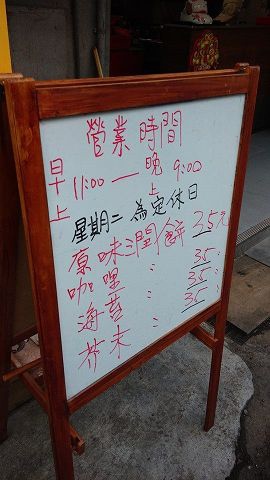 營業時間
早上 11:00 — 晚上 9:00
星期二 為定休日
原味潤餅 35元
咖哩 〃 35〃
海苔 〃 35〃
芥末 〃 35〃